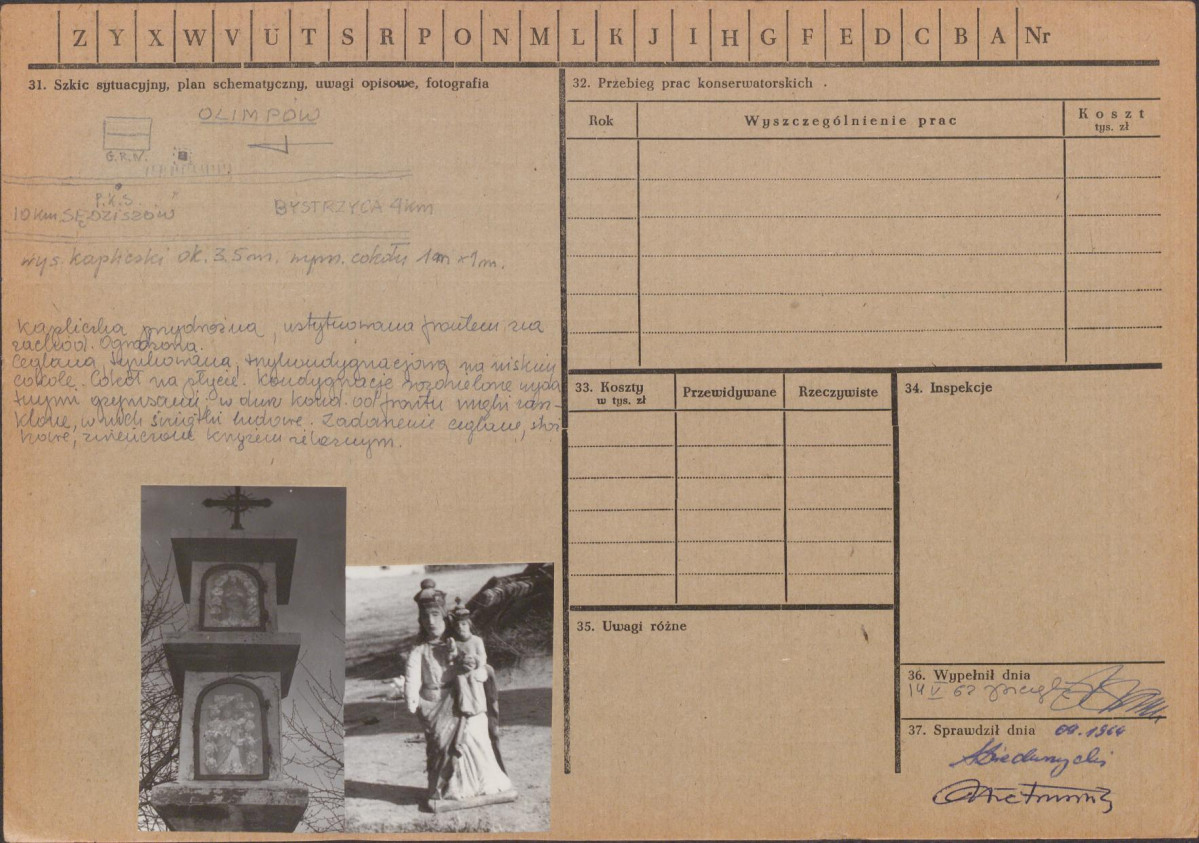 Z Y X W V U T S R P O N M L K J I H G F E D C B A Nr
31. Szkic sytuacyjny, plan schematyczny, uwagi opisowe, fotografia
OLIMPÓW
G.R.N.
P.K.S.
10 km SĘDZISZÓW
BYSTRZYCA 4 km
wys. kapliczki ok. 3.5 m. wym. cokołu 1m × 1m.
Kapliczka przydrożna, usytuowana frontem na
zachód. Ogrodzona.
Ceglana, tynkowana, trzykondygnacjowa na niskim
cokole. Cokół na płycie. Kondygnacje rozdzielone wyda
tnymi gzymsami. W dwu kond. od frontu wnęki zasz-
klone, w nich świątki ludowe. Zadaszenie ceglane, stoż
kowe, zwieńczone krzyżem żelaznym.
32. Przebieg prac konserwatorskich
Rok
Wyszczególnienie prac
Koszt
tys. zł
33. Koszty
w tys. zł
Przewidywane
Rzeczywiste
34. Inspekcje
35. Uwagi różne
36. Wypełnił dnia
14 V 62
37. Sprawdził dnia 09.1964